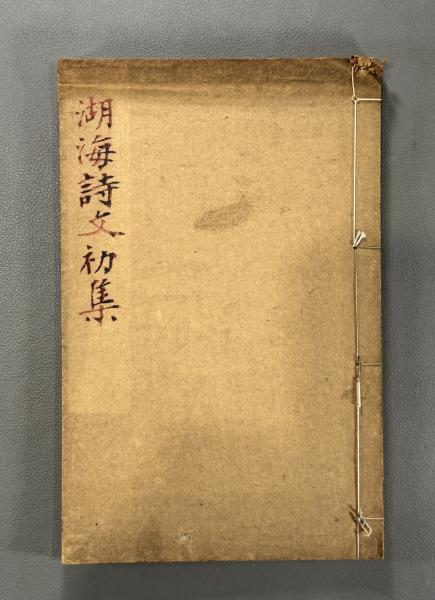 湖海詩文初集